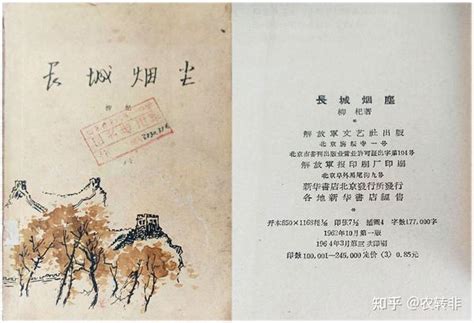 长城烟尘
柳杞
長城烟塵
柳杞著
解放軍文艺社出版
北京市書刊出版业营业許可証出字第104号
解放軍报印刷厂印刷
新华書店北京發行所發行
各地新华書店經售
开本850×1168 印张7 插图4 字数177,000字
1962年10月第一版
1964年3月第三次印刷
印数100,001—245,000 定价(3) 0.85元
知乎 @农转非